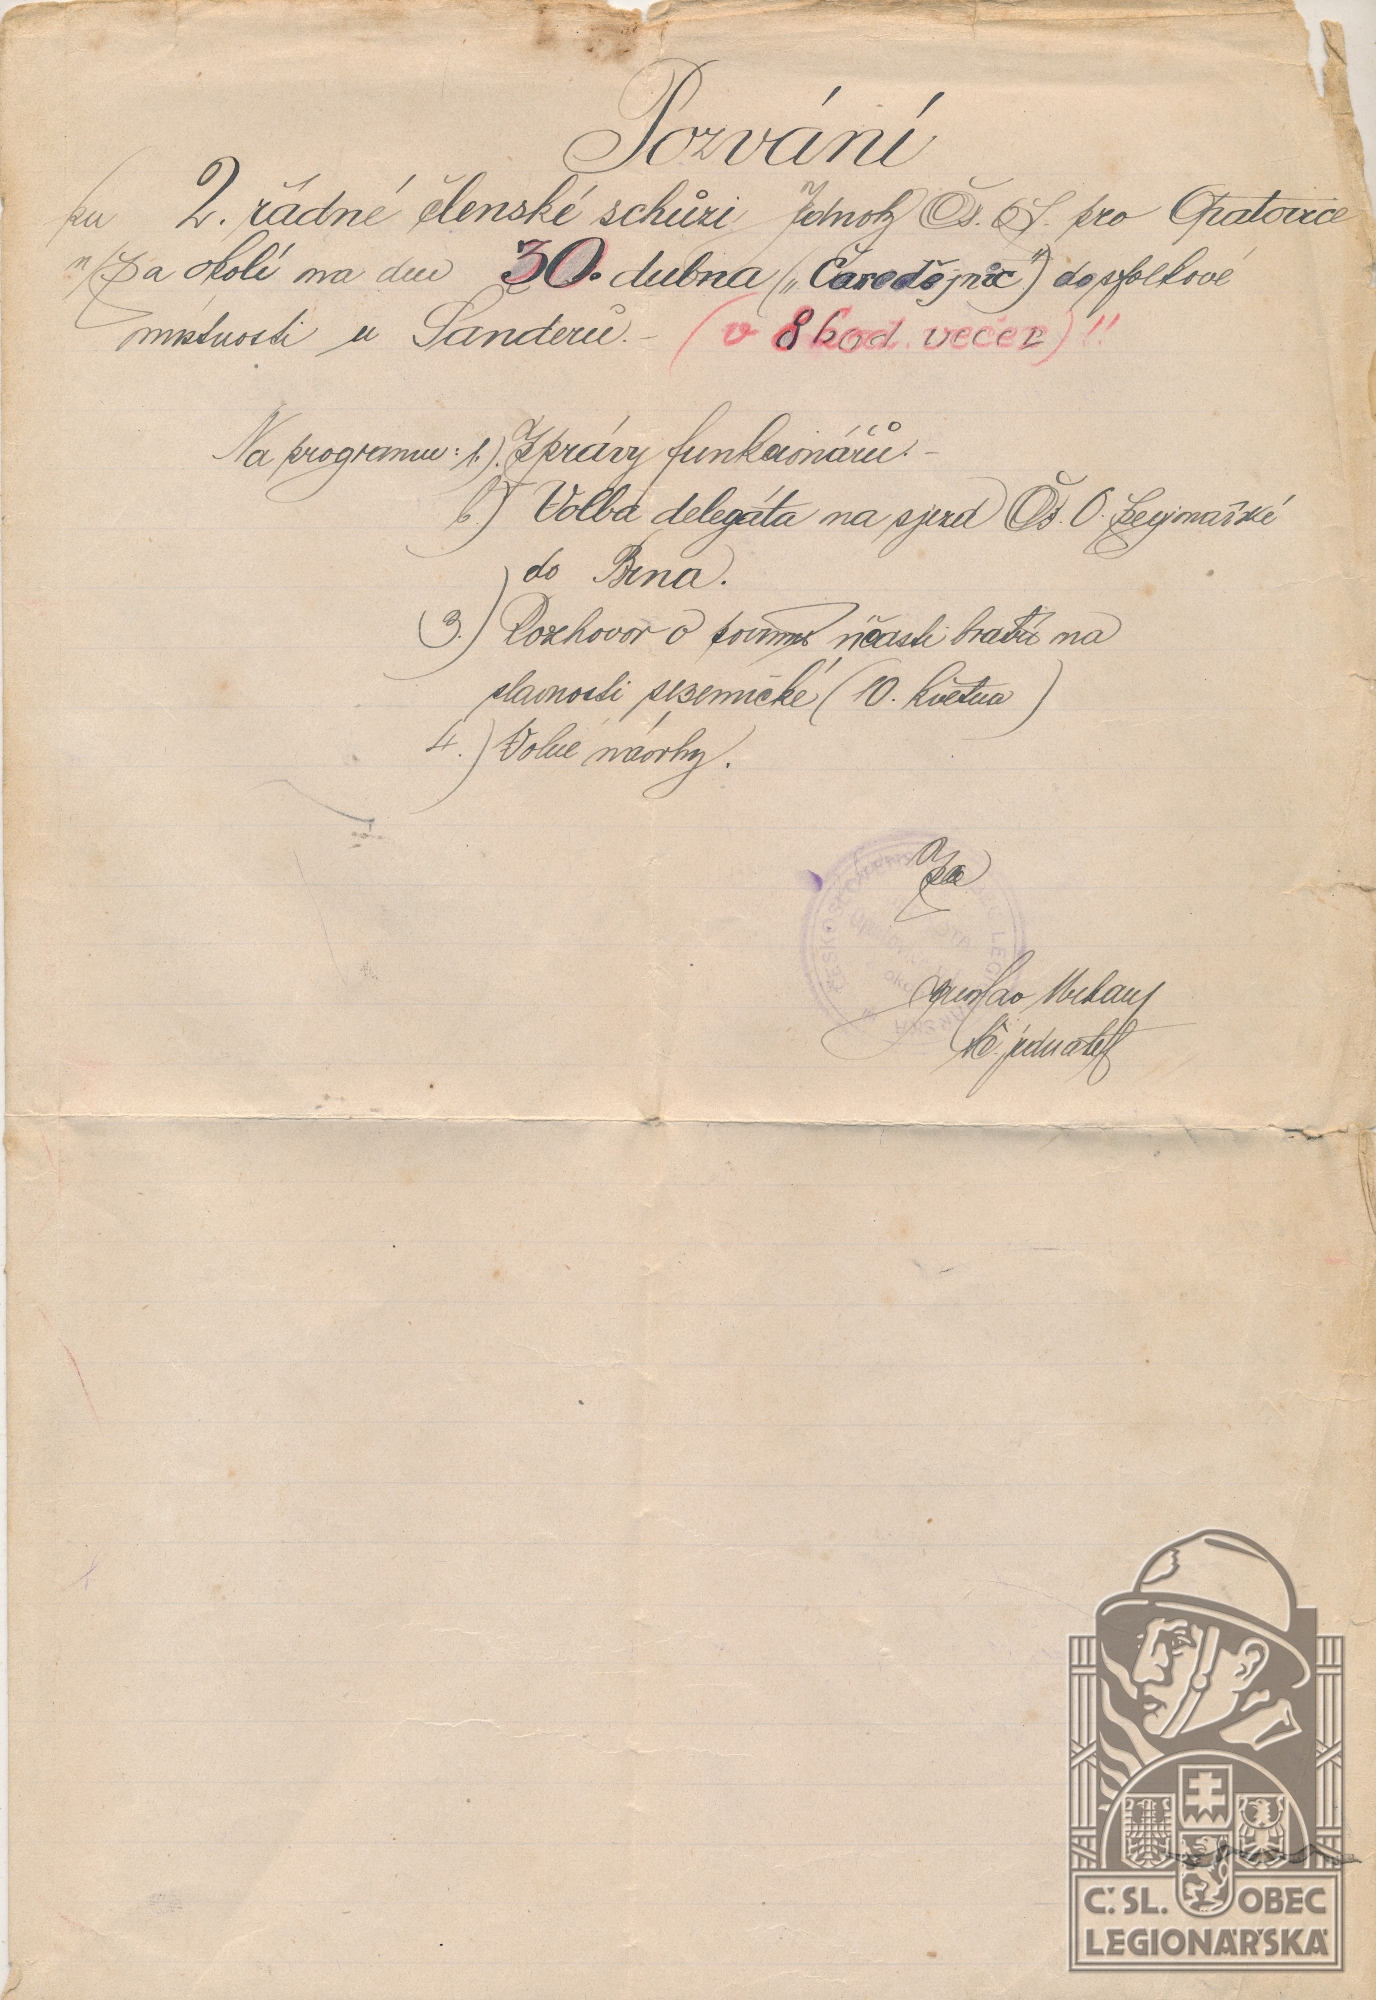 Pozvání
ku 2. řádné členské schůzi Jednoty Čs. O. L. pro Opatovice
a okolí na den 30. dubna („Čarodějnic") do spolkové
místnosti u Šanderů. — (v 8 hod. večer)!!
Na programu: 1.) Zprávy funkcionářů. —
2.) Volba delegáta na sjezd Čs. O. Legionářské
do Brna.
3.) Rozhovor o účasti bratří na
slavnosti sezemické (10. května)
4.) Volné návrhy.
Za
t. č. jednatel
ČESKOSLOVENSKÁ OBEC LEGIONÁŘSKÁ
Č. SL. OBEC
LEGIONÁŘSKÁ